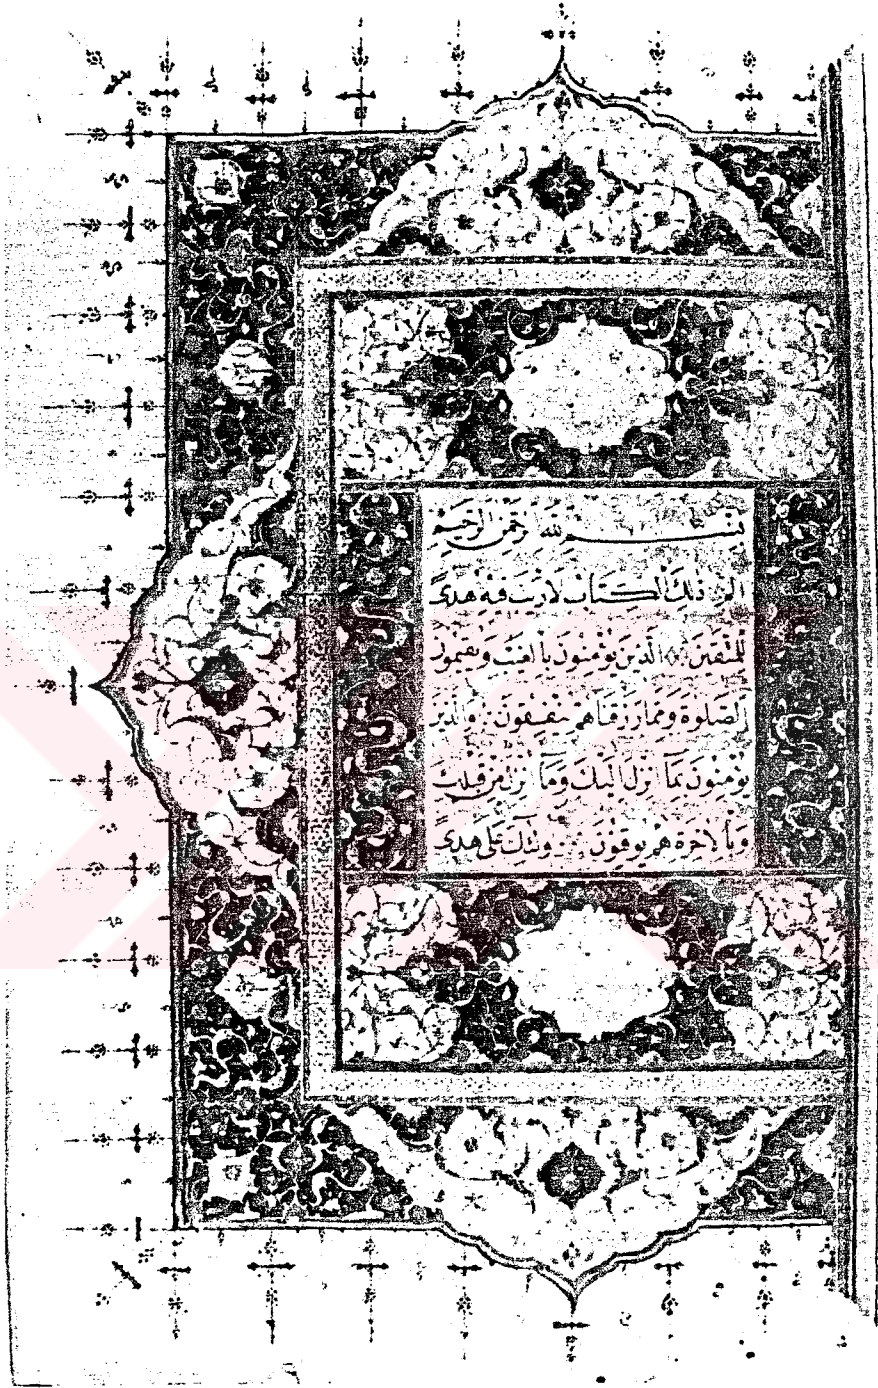 بِسْمِ اللّٰهِ الرَّحْمٰنِ الرَّحِيمِ
الٓمٓ ذٰلِكَ الْكِتَابُ لَا رَيْبَ فِيهِ هُدًى
لِلْمُتَّقِينَ الَّذِينَ يُؤْمِنُونَ بِالْغَيْبِ وَيُقِيمُونَ
الصَّلٰوةَ وَمِمَّا رَزَقْنَاهُمْ يُنْفِقُونَ وَالَّذِينَ
يُؤْمِنُونَ بِمَا أُنْزِلَ إِلَيْكَ وَمَا أُنْزِلَ مِنْ قَبْلِكَ
وَبِالْاٰخِرَةِ هُمْ يُوقِنُونَ أُولٰئِكَ عَلٰى هُدًى